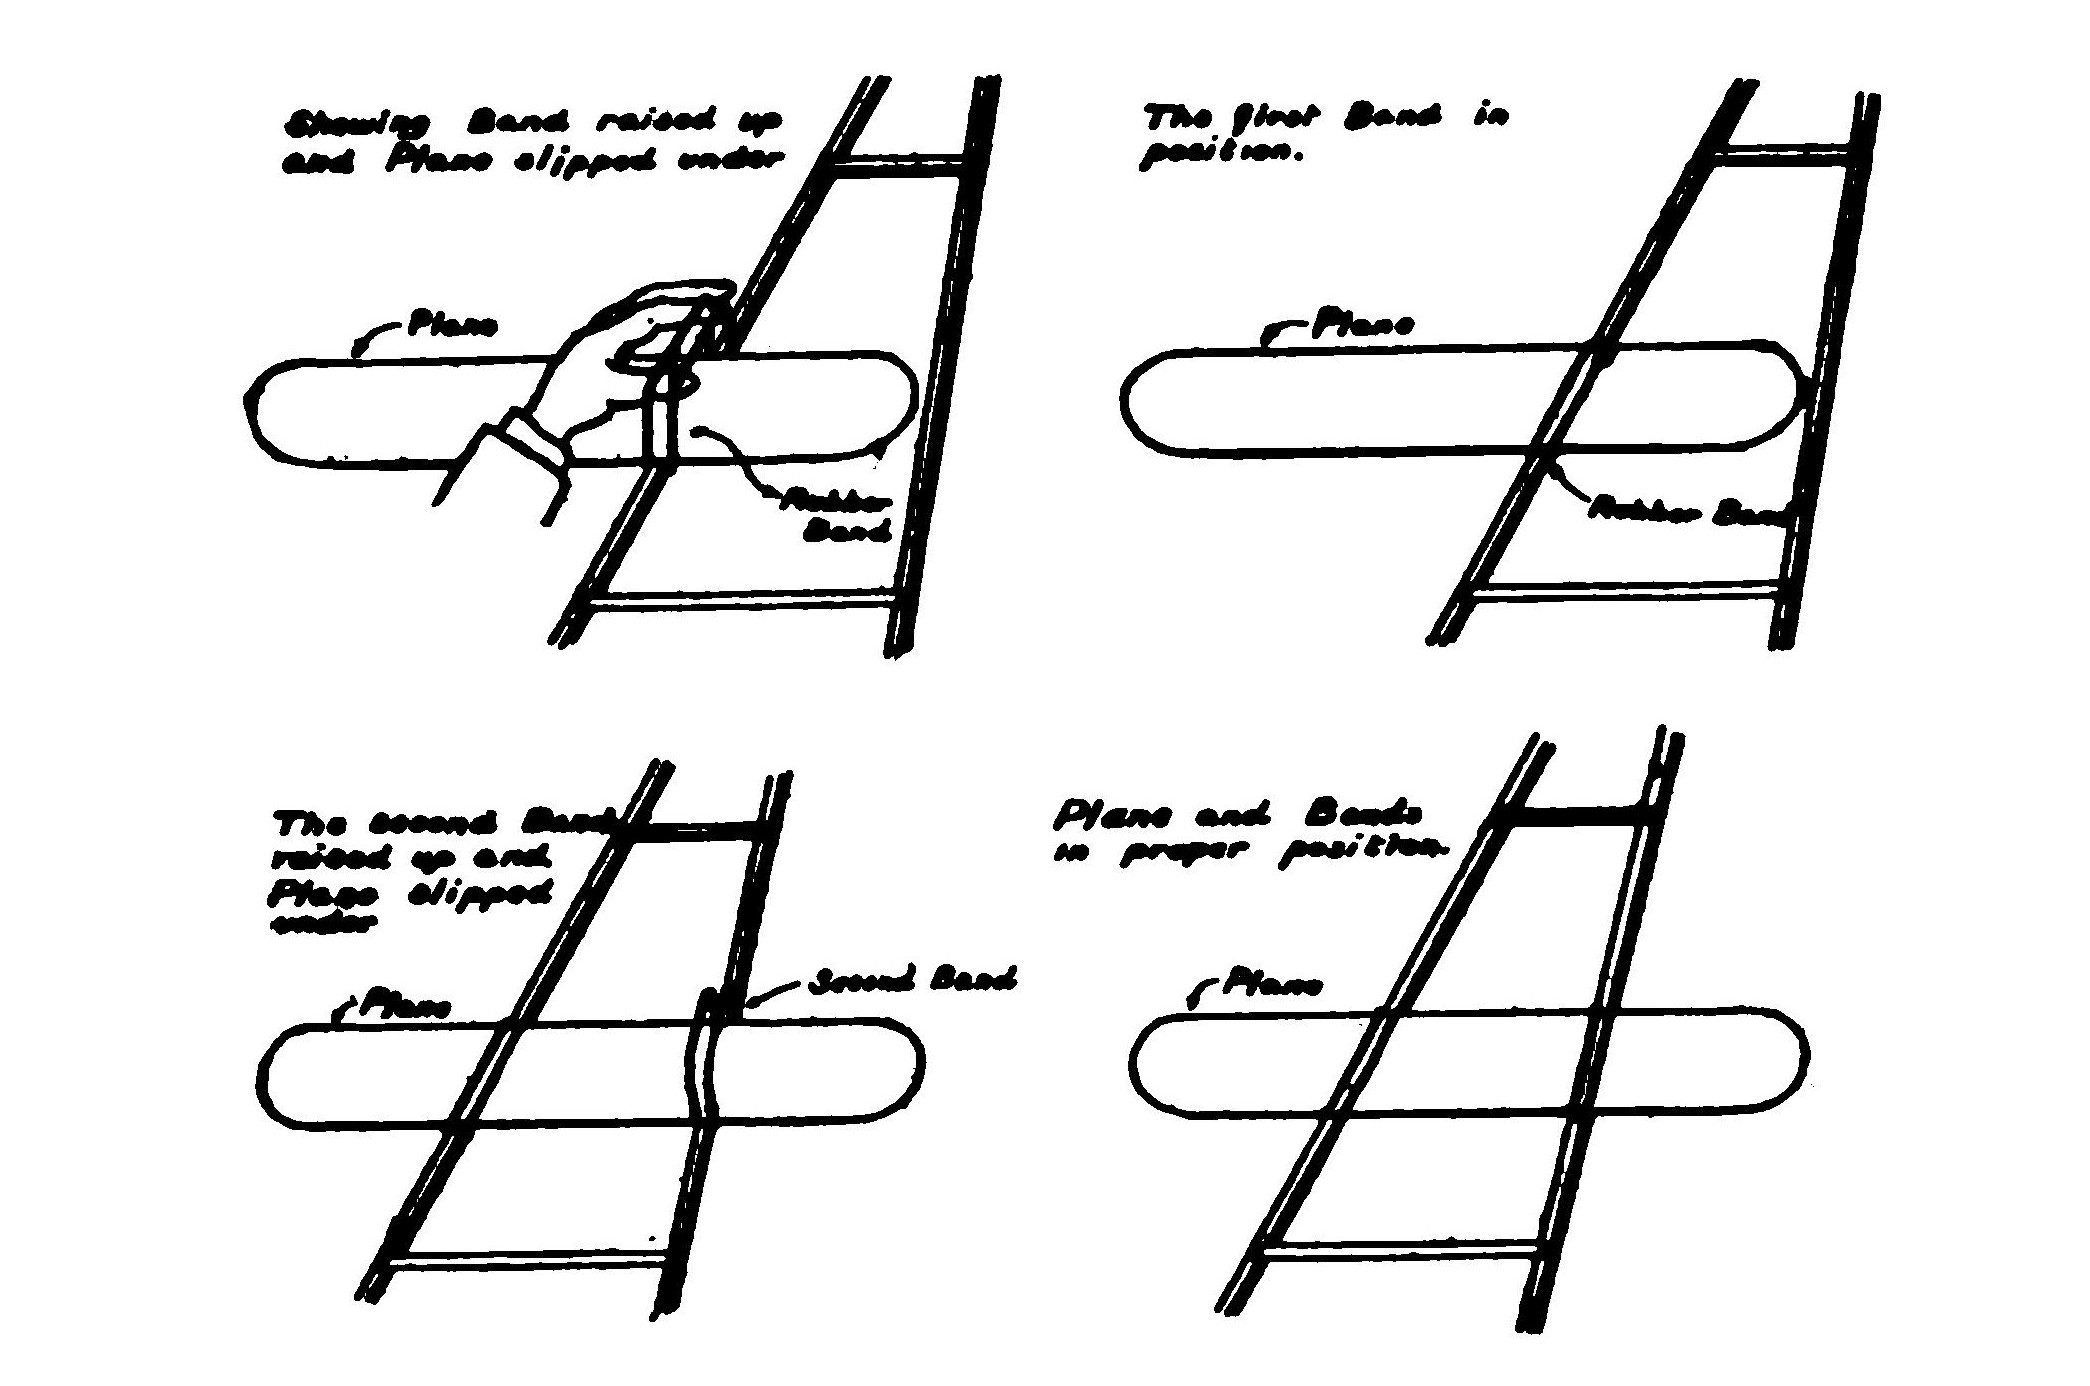 Showing Band raised up
and Plane slipped under
Plane
Rubber
Band
The first Band in
position.
Plane
Rubber Band
The second Band
raised up and
Plane slipped
under
Plane
Second Band
Plane and Bands
in proper position.
Plane